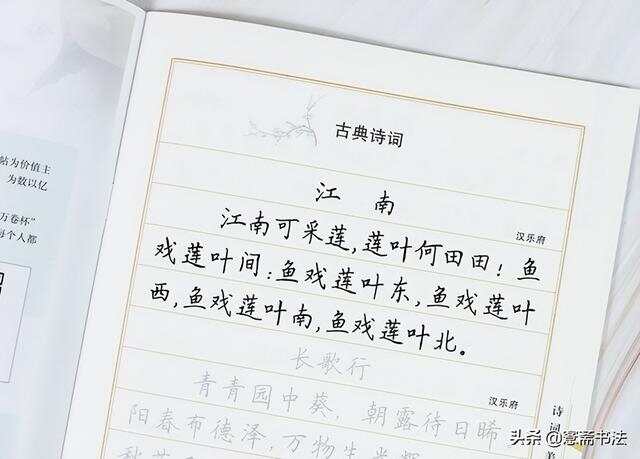 古典诗词
江 南
汉乐府
江南可采莲,莲叶何田田!鱼
戏莲叶间:鱼戏莲叶东,鱼戏莲叶
西,鱼戏莲叶南,鱼戏莲叶北。
长歌行
汉乐府
青青园中葵,朝露待日晞
阳春布德泽,万物生光辉
帖为价值主
为数以亿
万卷杯”
每个人都
诗词
头条@寇斋书法